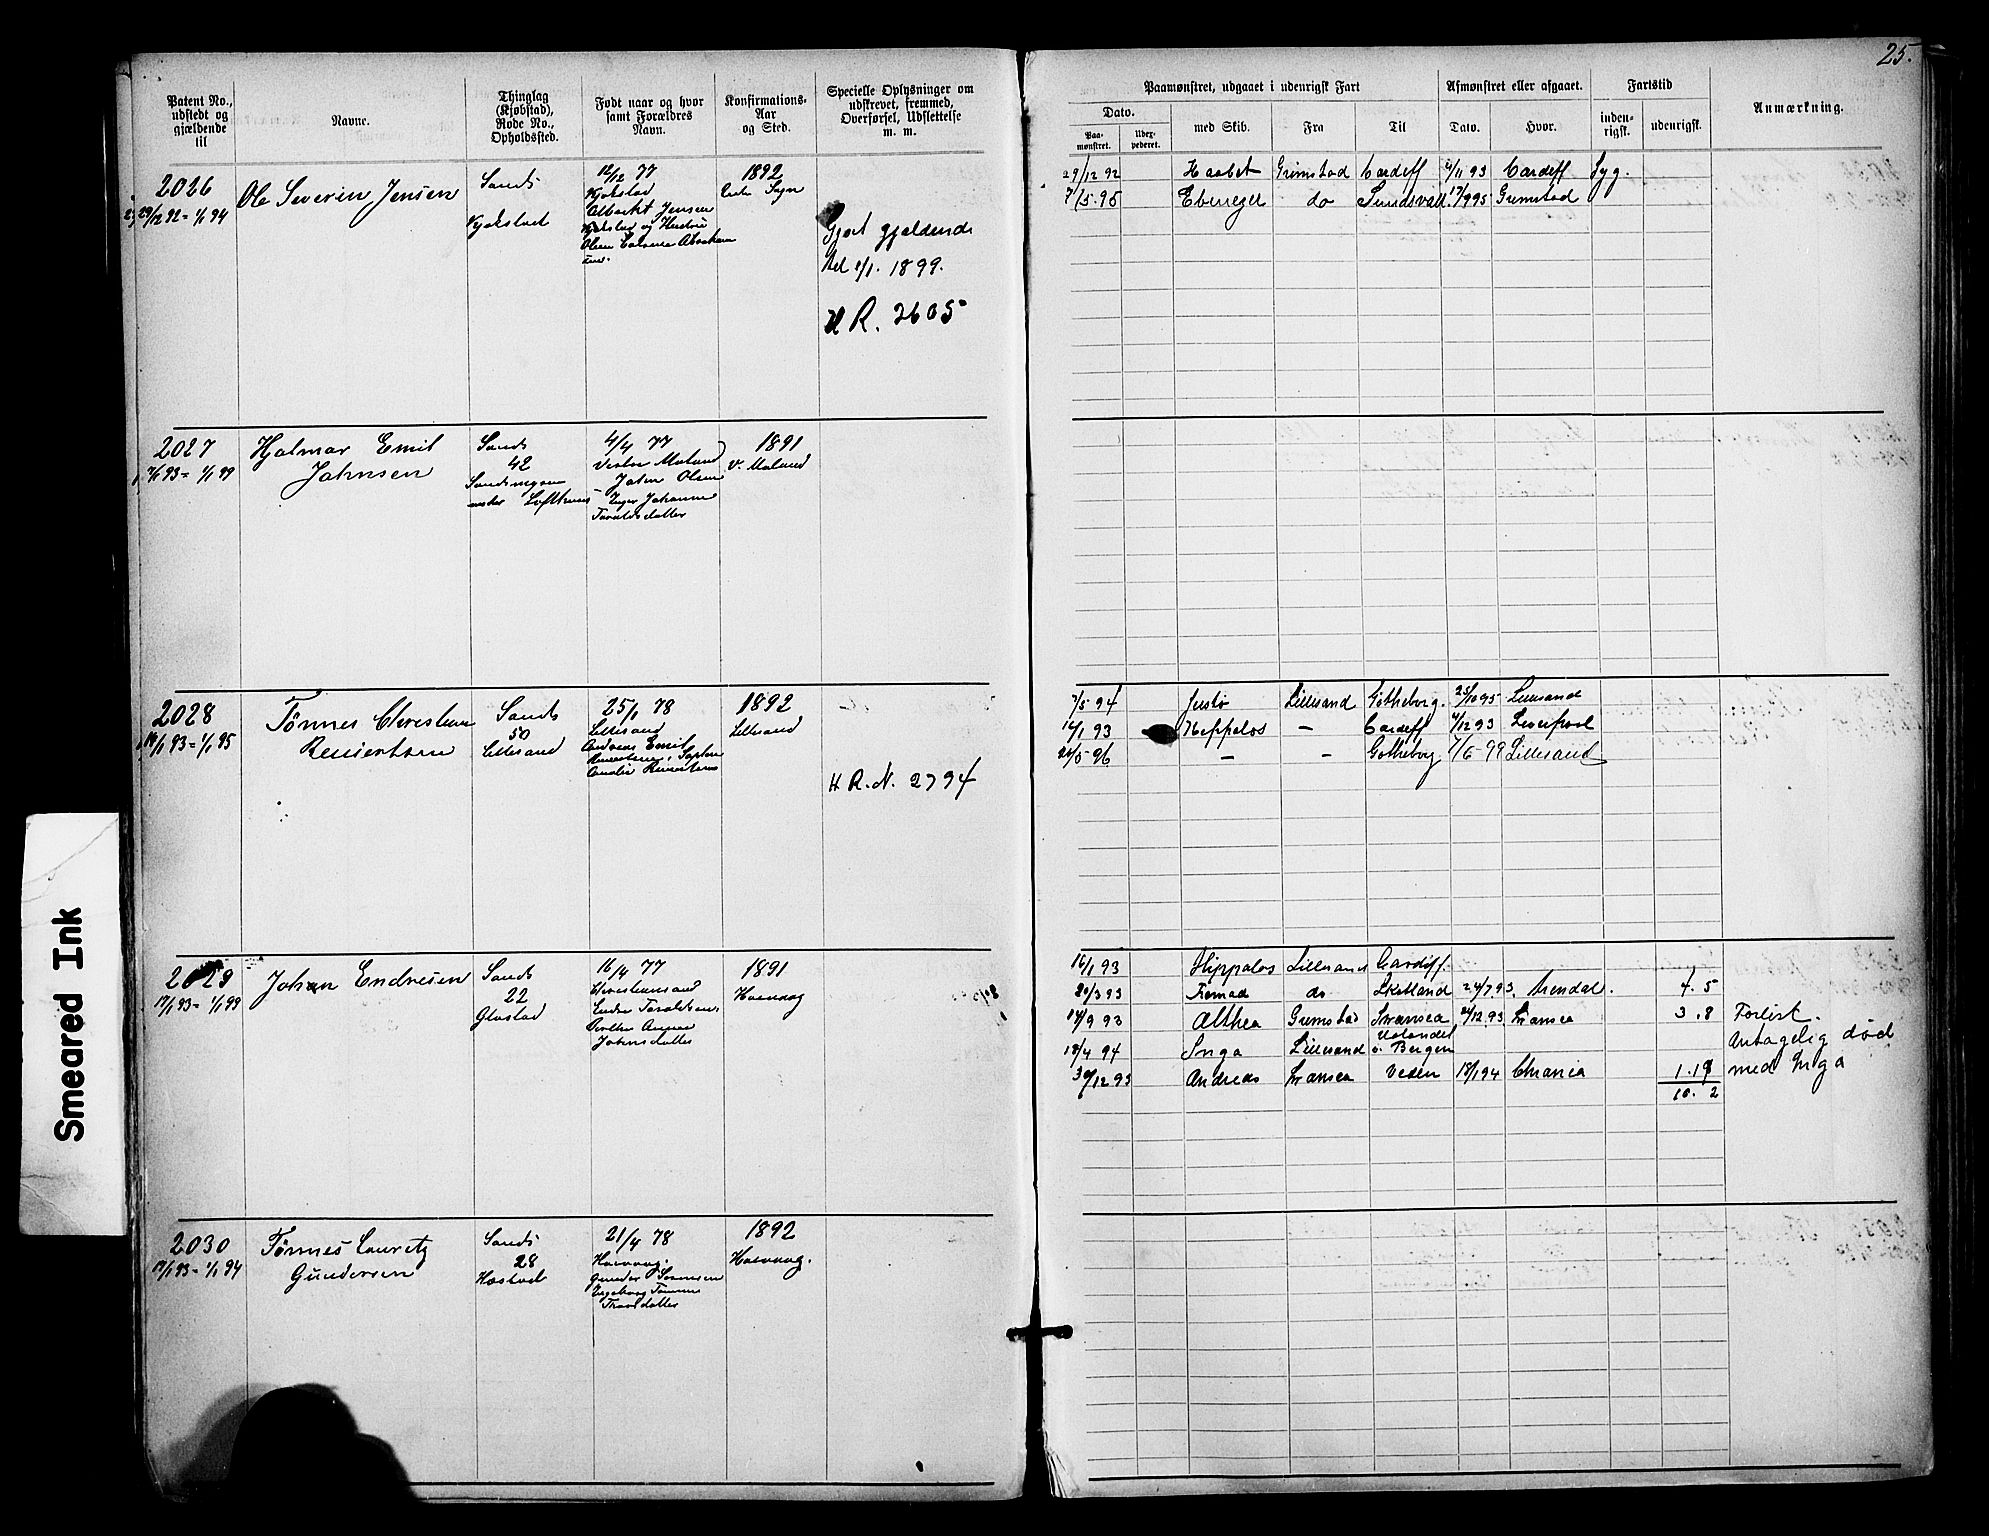 25.
Patent No., udstedt og gjældende til
Navne.
Thinglag (Kjøbstad), Rode No., Opholdssted.
Født naar og hvor samt Forældres Navn.
Konfirmations-Aar og Sted.
Specielle Oplysninger om udskrevet, fremmed, Overførsel, Udslettelse m. m.
Paamønstret, udgaaet i udenrigsk Fart
Afmønstret eller afgaaet.
Fartstid
Anmærkning.
Dato.
Paa-mønstret.
Uberpederet.
med Skib.
Fra
Til
Dato.
Hvor.
inden-rigsk.
udenrigsk.
2026
29/12 92 = 1/1 94
Ole Severin Jensen
Sands
Kjøkstad
12/12 77
Kjøkstad
Jensen
1892
Sogn
Gjort gjældende
til 1/1. 1899.
H R. 2605
29/12 92 Haabet Grimstad Cardiff 4/11 93 Cardiff Syg.
7/5. 95 Ebeneser do Sundsvall 17/9 95 Grimstad
2027
7/1 93 = 1/1 99
Hjalmar Emil
Johnsen
Sands
42
under Lofthuus
4/4 77
Vestre Moland
John Olsen
Inger Johanne
Taraldsdatter
1891
V. Moland
2028
14/1 93 = 1/1 95
Tønnes Christian
Reuiertsen
Sands
50
Lillesand
25/1 78
Lillesand
Andreas Emil
1892
Lillesand
H R. N. 2794
7/5 94 Justø Lillesand Gøtheborg. 25/10 95 Lillesand
14/1 93 Hippalos — Cardiff 4/12 93 Liverpool
20/5 96 — — Gøtheborg 7/6 99 Lillesand
2029
17/1 93 = 1/1 99
Johan Endresen
Sands
22
Glastad
16/4 77
Christiansand
Endre Taraldsen
Johnsdatter
1891
Høivaag
16/1 93 Hippalos Lillesand Cardiff.
20/3 93 Fremad do Skotland 24/7 93. Arendal. 4. 5
14/9 93 Althea Grimstad Swansea 24/12 93. Swansea 3. 8
18/4 94 Inga Lillesand Udlandet o. Bergen
30/12 93 Andreas Swansea Veden 18/1 94 Chrania 1. 19
10. 2
Forlist.
Antagelig død
med Inga
2030
17/1 93 = 1/1 94
Tønnes Lauritz
Gundersen
Sands
28
Høstad
21/4 78
Høivaag.
Gunder Tønnesen
Ingeborg
1892
Høivaag.
Smeared Ink